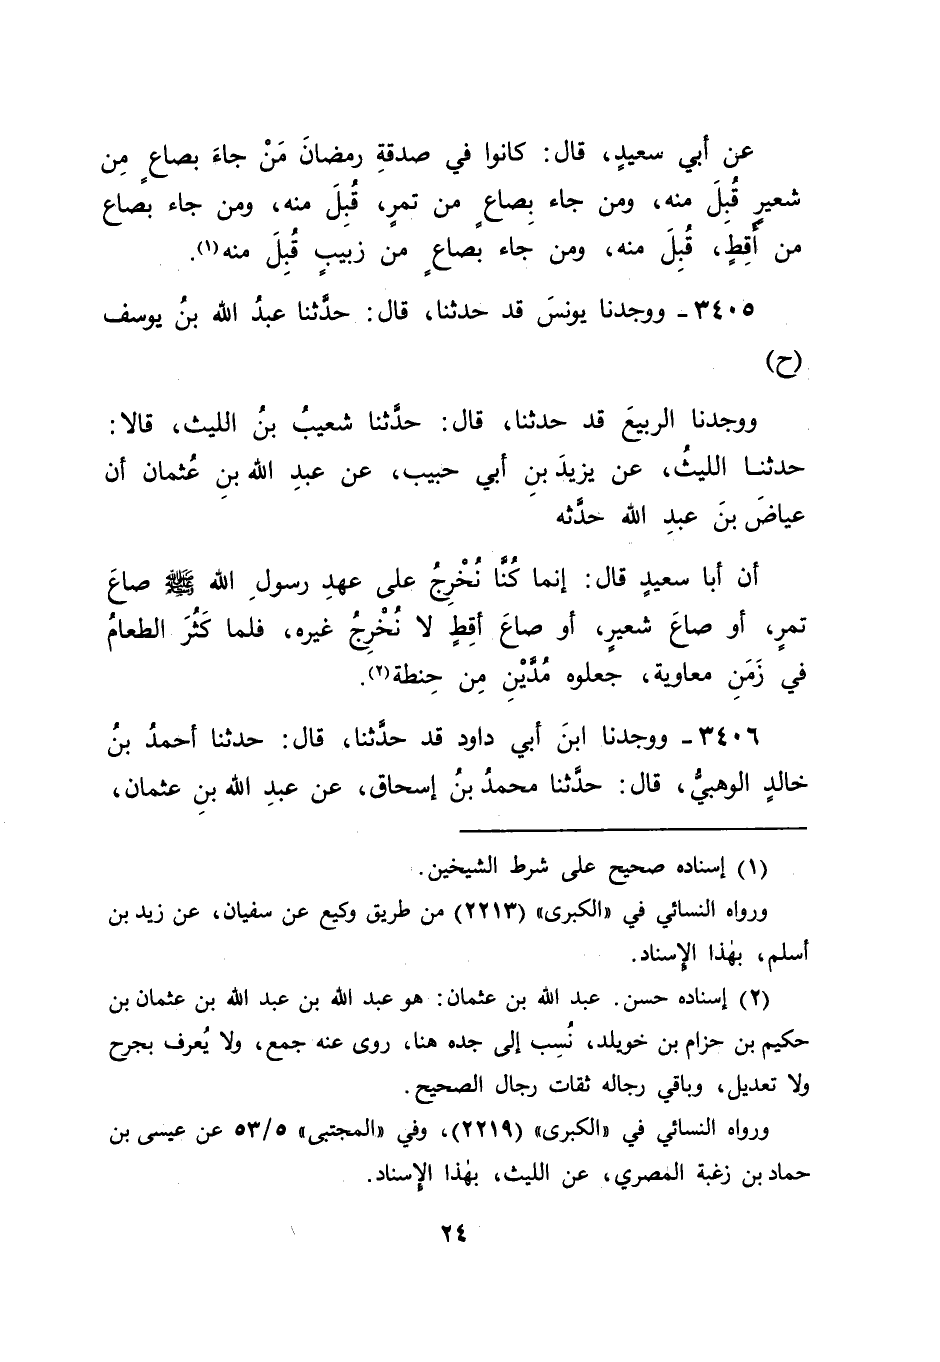 عن أبي سعيدٍ، قال: كانوا في صدقةِ رمضانَ مَنْ جاءَ بصاعٍ مِن
شعيرٍ قُبِلَ منه، ومن جاء بِصاعٍ من تمرٍ، قُبِلَ منه، ومن جاء بصاع
من أَقِطٍ، قُبِلَ منه، ومن جاء بصاعٍ من زبيبٍ قُبِلَ منه(١).
٣٤٠٥ـ ووجدنا يونسَ قد حدثنا، قال: حدَّثنا عبدُ الله بنُ يوسف
(ح)
ووجدنا الربيعَ قد حدثنا، قال: حدَّثنا شعيبُ بنُ الليث، قالا:
حدثنا الليثُ، عن يزيدَ بنِ أبي حبيب، عن عبدِ الله بنِ عُثمان أن
عياضَ بنَ عبدِ الله حدَّثه
أن أبا سعيدٍ قال: إنما كُنَّا نُخْرِجُ على عهدِ رسولِ الله ﷺ صاعَ
تمرٍ، أو صاعَ شعيرٍ، أو صاعَ أقِطٍ لا نُخْرِجُ غيره، فلما كَثُرَ الطعامُ
في زَمَنِ معاوية، جعلوه مُدَّيْنِ مِن حِنطة(٢).
٣٤٠٦ـ ووجدنا ابنَ أبي داود قد حدَّثنا، قال: حدثنا أحمدُ بنُ
خالدٍ الوهبيُّ، قال: حدَّثنا محمدُ بنُ إسحاق، عن عبدِ الله بنِ عثمان،
(١) إسناده صحيح على شرط الشيخين.
ورواه النسائي في «الكبرى» (٢٢١٣) من طريق وكيع عن سفيان، عن زيد بن
أسلم، بهٰذا الإسناد.
(٢) إسناده حسن. عبد الله بن عثمان: هو عبد الله بن عبد الله بن عثمان بن
حكيم بن حزام بن خويلد، نُسِب إلى جده هنا، روى عنه جمع، ولا يُعرف بجرح
ولا تعديل، وباقي رجاله ثقات رجال الصحيح.
ورواه النسائي في «الكبرى» (٢٢١٩)، وفي «المجتبى» ٥٣/٥ عن عيسى بن
حماد بن زغبة المصري، عن الليث، بهٰذا الإسناد.
٢٤